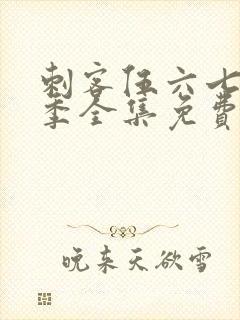 刺客伍六七
季全集免費
晚来天欲雪